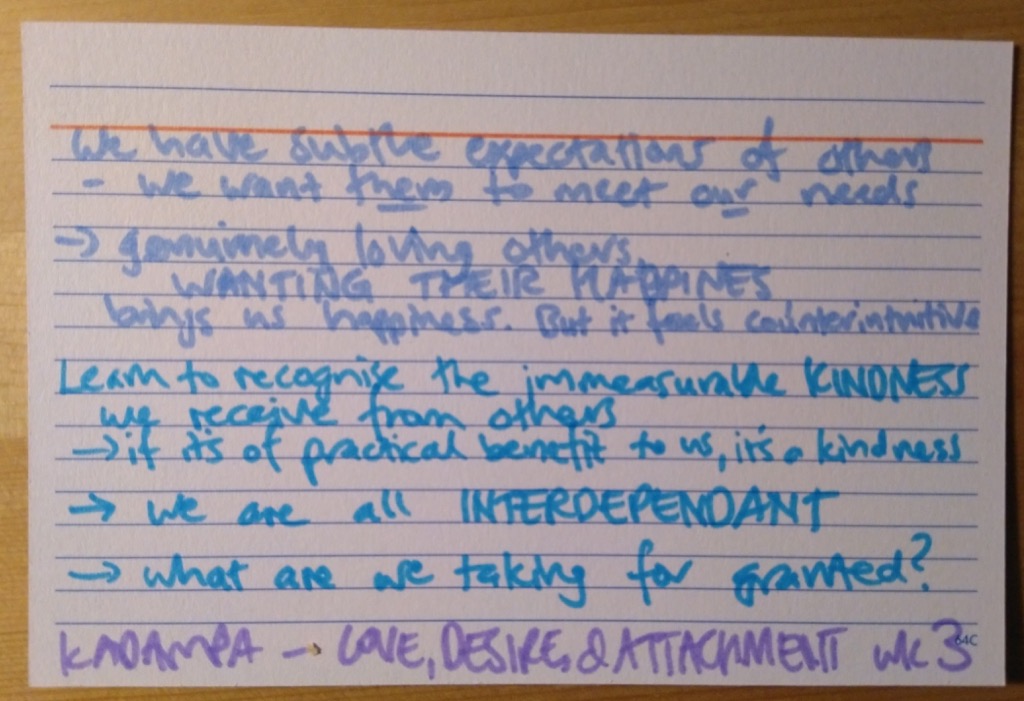 We have subtle expectations of others
- we want them to meet our needs
→ genuinely loving others,
WANTING THEIR HAPPINES
brings us happiness. But it feels counterintuitive
Learn to recognise the immeasurable KINDNESS
we receive from others
→ if it's of practical benefit to us, it's a kindness
→ we are all INTERDEPENDANT
→ what are we taking for granted?
KADAMPA → LOVE, DESIRE, & ATTACHMENT wk 3
64C